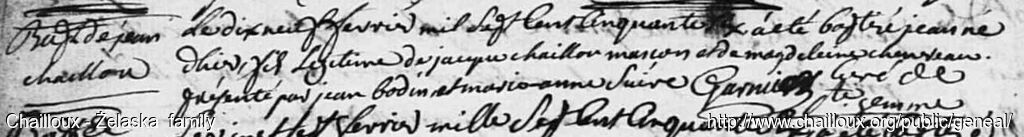 Bapt. de jean
chaillou
Le dix neuf fevrier mil Sept Cent Cinquante six a été baptizé jean né
d'hier, fils Legitime de jacque chaillou masson et de magdeleine cheuvreau.
présenté par jean bodin et marie anne Suire Garnier curé de
ste. gemme
fevrier mille Sept Cent Cinquante
Chailloux - Żelaska family
http://www.chailloux.org/public/geneal/